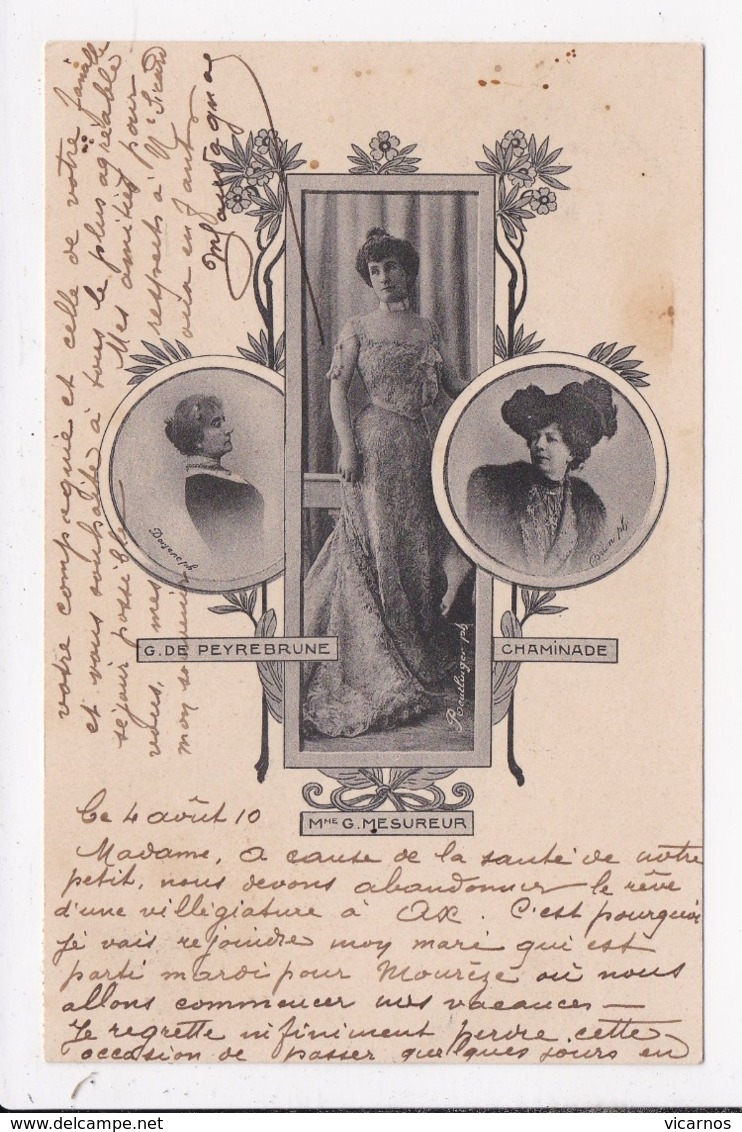 G. DE PEYREBRUNE
CHAMINADE
MME G. MESUREUR
Reutlinger ph
Ce 4 août 10
Madame, a cause de la santé de notre
petit, nous devons abandonner le rêve
d'une villégiature à Ax. C'est pourquoi
je vais rejoindre mon mari qui est
parti mardi pour Mourèze où nous
allons commencer nos vacances —
Je regrette infiniment perdre cette
occasion de passer quelques jours en
votre compagnie et celle de votre famille
et vous souhaite à tous le plus agréable
séjour possible.
Mes amitiés pour
vous, mes respects à Mr Sicard
mon souvenir aux enfants
delcampe.net
vicarnos